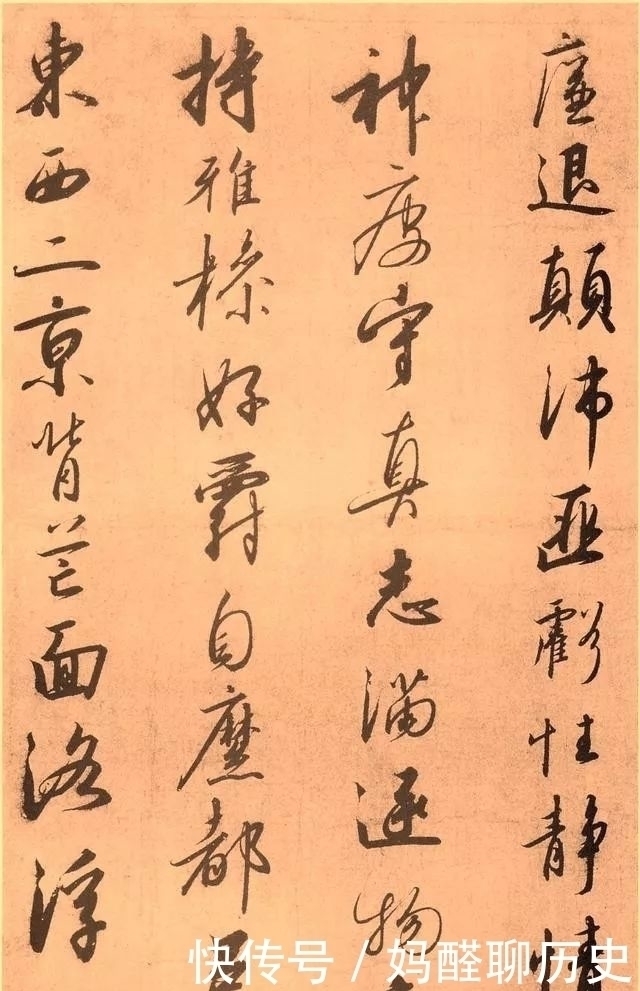 廉退顛沛匪虧性静情
神疲守真志滿逐物
持雅操好爵自縻都
東西二京背芒面洛浮
快传号 / 妈醛聊历史